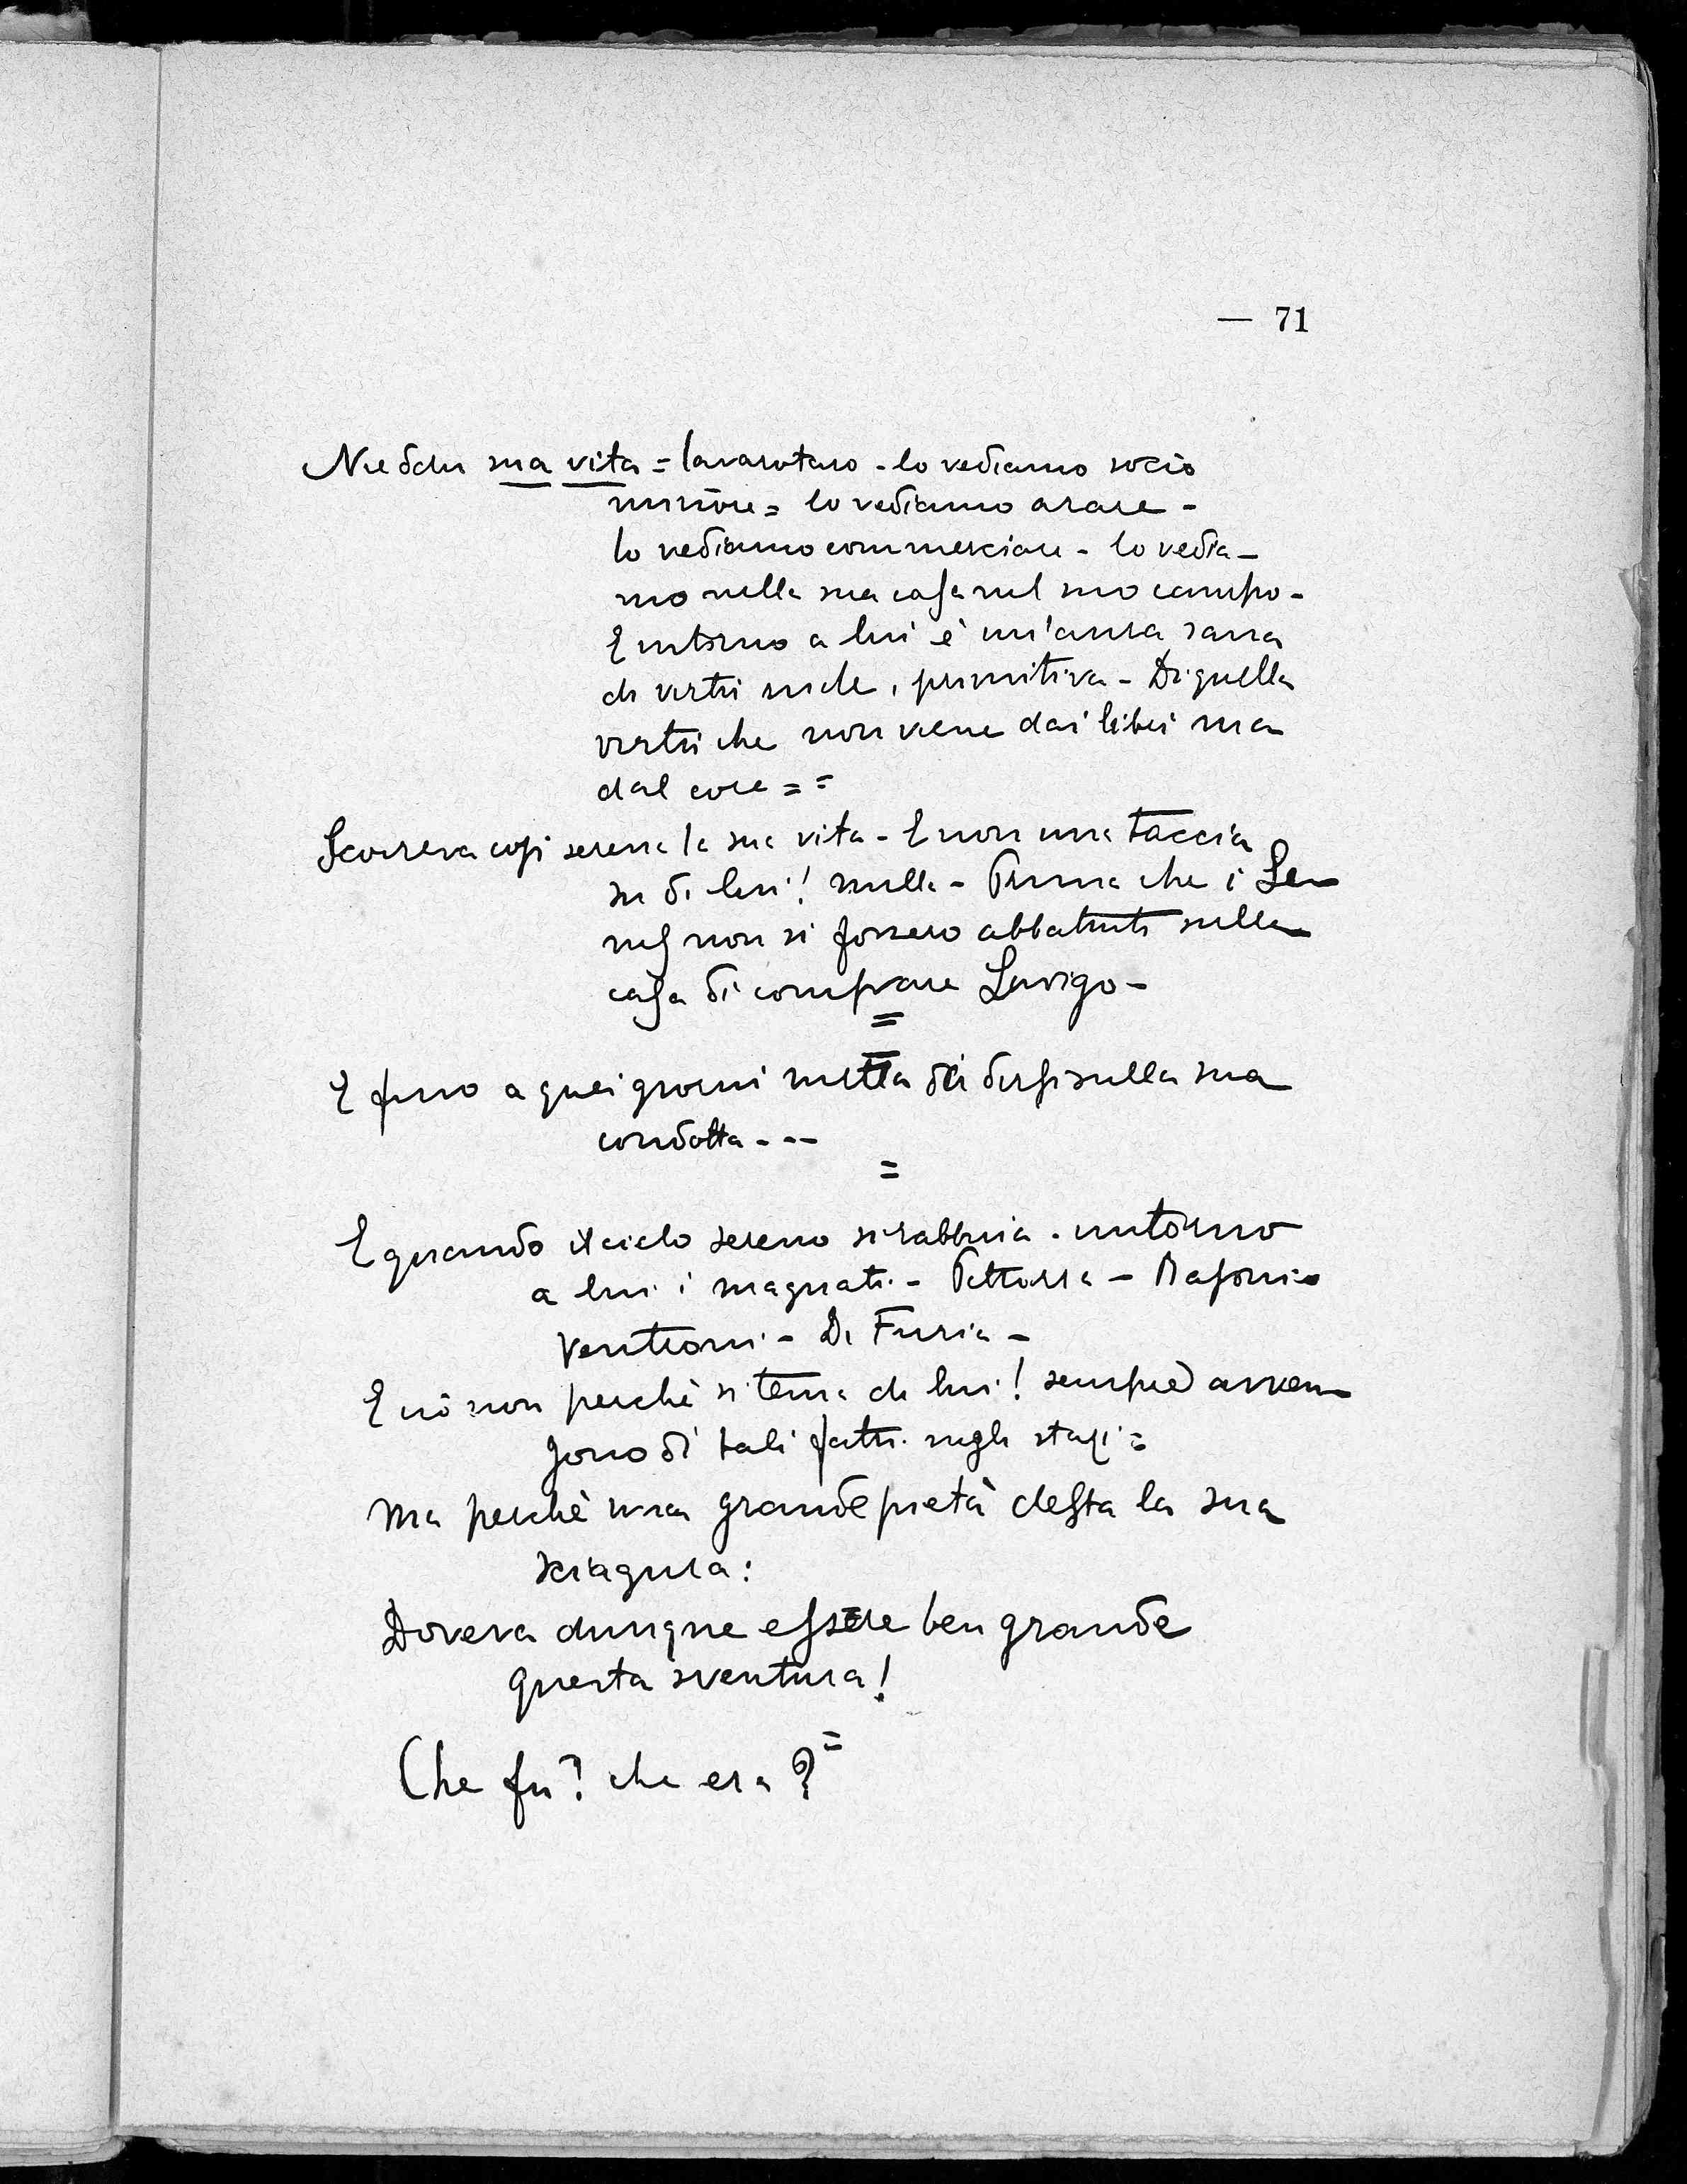 — 71
sua vita = lo vediamo socio
minore = lo vediamo arare -
lo vediamo commerciare - lo vedia-
mo nella sua casa nel suo campo -
E intorno a lui è un'aura sana
di virtù rude, primitiva - Di quella
virtù che non viene dai libri ma
dal core = =
Scorreva così serena la sua vita - E non una taccia
su di lui! nulla - Prima che i
non si fossero abbattuti sulla
casa di compare
=
E fino a quei giorni nulla di dirsi sulla sua
condotta - - -
=
E quando il cielo sereno si rabbuia - intorno
a lui i magnati - -
- De Furia -
E nò non perchè si tema di lui! sempre avven
gono di tali fatti negli
Ma perchè una grande pietà desta la sua
sciagura:
Doveva dunque essere ben grande
questa sventura!
=
Che fu? che era?